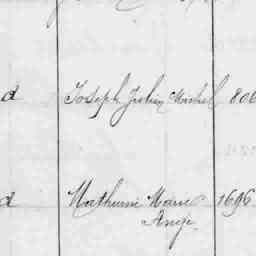 d Joseph Julien Michel 806
d Mathurin Marie 1696
Ange